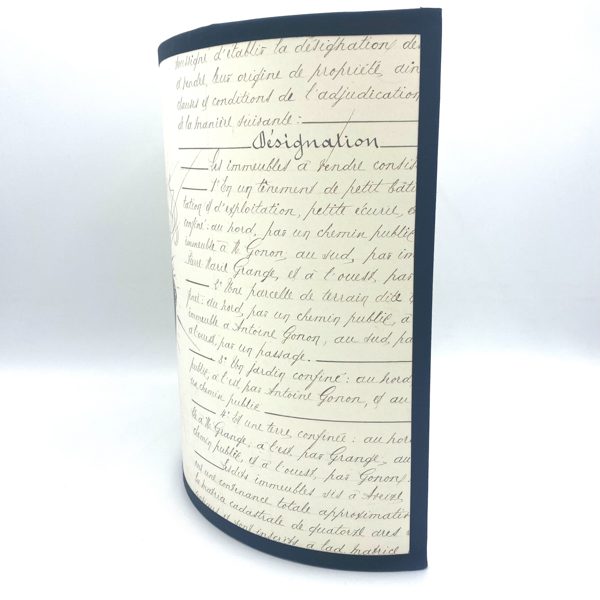 d'établir la désignation des
vendre, leur origine de propriété, ain
clauses et conditions de l'adjudication
et la manière suivante :
Désignation
Les immeubles à vendre consis
1° En un tènement de petit bâti
tation et d'exploitation, petite écurie,
confiné : au nord, par un chemin public
immeuble à M. Gonon, au sud, par im
Marie Grange, et à l'ouest, par
2° Une parcelle de terrain dite
au nord, par un chemin public, à
immeuble à Antoine Gonon, au sud, pa
à l'ouest, par un passage.
3° Un jardin confiné : au nord,
public, à l'est, par Antoine Gonon, et au
un chemin public
4° Et une terre, confinée : au nor
à M. Grange, à l'est, par Grange, au
chemin public, et à l'ouest, par Gonon.
Lesdits immeubles sis à
ont une contenance totale approximati
la matrice cadastrale de quatorze ares
et sont inscrits à lad. matrice